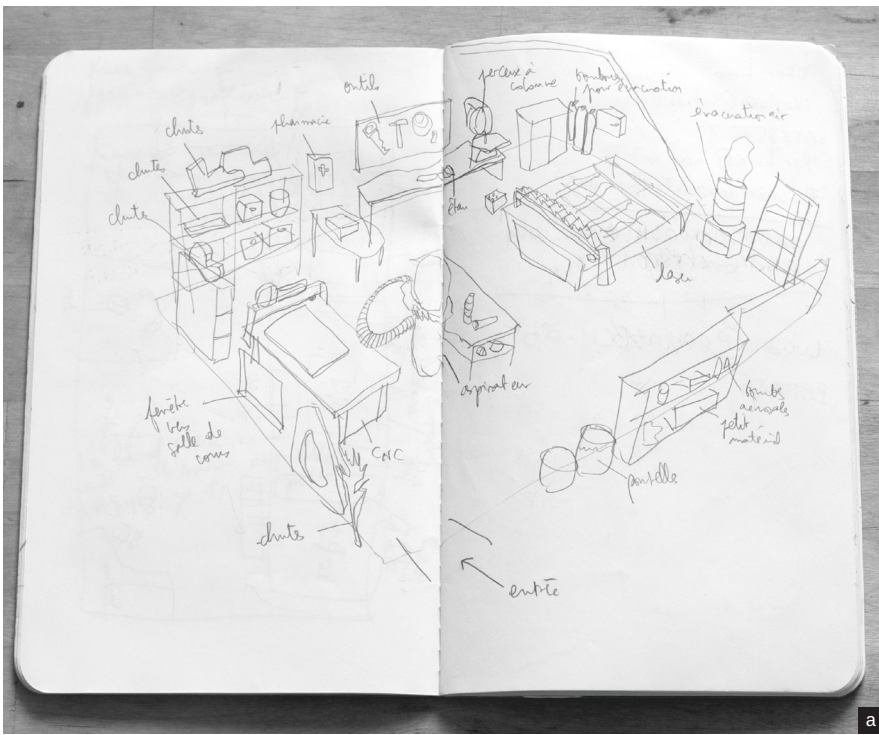 outils
chutes
pharmacie
chutes
chutes
perceuse à
colonne
bombonnes
pour évacuation
évacuation air
étau
laser
aspirateur
fenêtre
vers
salle de
cours
CNC
chutes
bombes
aerosols
petit
matériel
poubelle
entrée
a